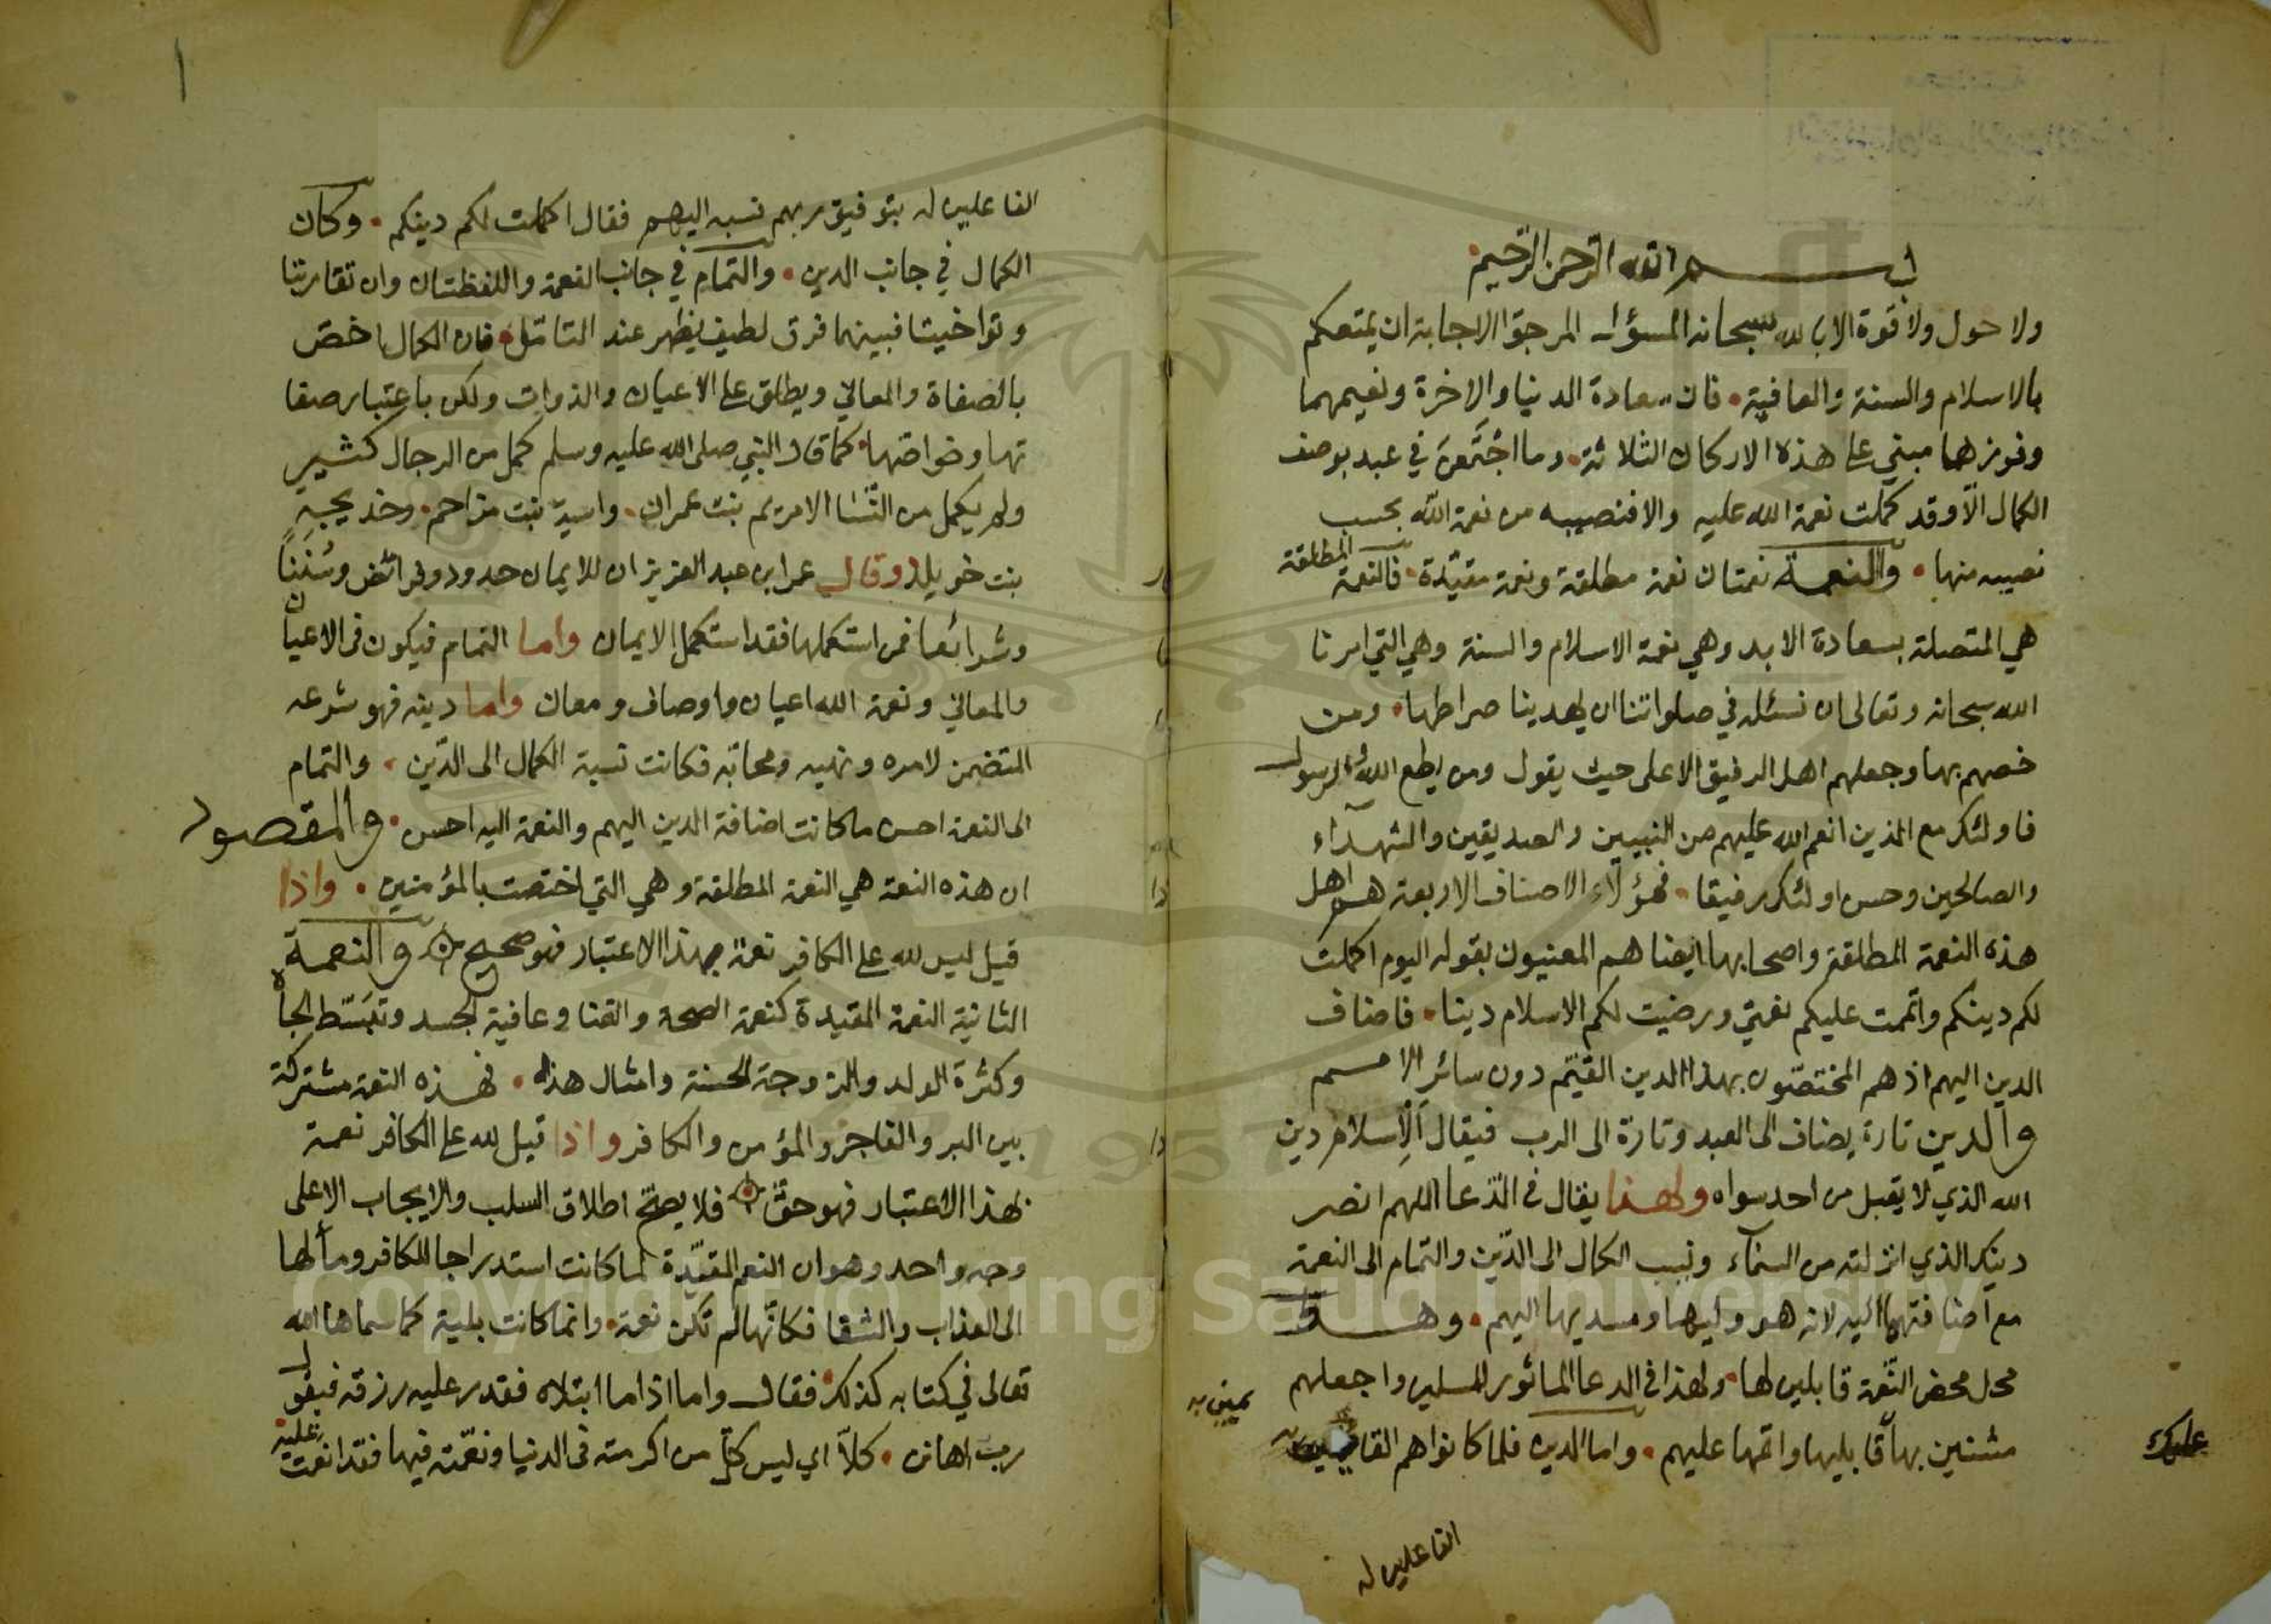 بسم الله الرحمن الرحيم
ولا حول ولا قوة الا بالله سبحانه المسؤل المرجوّ الاجابة ان يمتعكم
بالاسلام والسنة والعافية • فان سعادة الدنيا والاخرة ونعيمهما
وفوزهما مبني على هذه الاركان الثلاثة • وما اجْتَمَعْنَ في عبد بوصف
الكمال الّا وقد كملت نعمة الله عليه والا فنصيبه من نعمة الله بحسب
نصيبه منها • والنعمة نعمتان نعمة مطلقة ونعمة مقيّدة • فالنعمة المطلقة
هي المتصلة بسعادة الابد وهي نعمة الاسلام والسنة وهي التي امرنا
الله سبحانه وتعالى ان نسئله في صلواتنا ان يهدينا صراطها • ومن
خصهم بها وجعلهم اهل الرفيق الاعلى حيث يقول ومن يطع الله والرسول
فاولئك مع الذين انعم الله عليهم من النبيين والصديقين والشهدآء
والصالحين وحسن اولئك رفيقا • فهؤلاء الاصناف الاربعة هم اهل
هذه النعمة المطلقة واصحابها ايضا هم المعنيون بقوله اليوم اكملت
لكم دينكم واتممت عليكم نعمتي ورضيت لكم الاسلام دينا • فاضاف
الدين اليهم اذ هم المختصّون بهذا الدين القيّم دون سائرِ الامم
والدين تارة يضاف الى العبد وتارة الى الرب فيقال اَلْاِسلام دين
الله الذي لا يقبل من احد سواه ولهذا يقال في الدّعا اللهم انصر
دينك الذي انزلته من السمآء ونسب الكمال الى الدّين والتمام الى النعمة
مع اضافتها اليه لانه هو وليها ومسديها اليهم • وهم
محل محض النّعمة قابلين لها • ولهذا في الدعا الماثور للمسلمين واجعلهم
مثنين بها قابليها واتمها عليهم • واما الدين فلما كانوا هم القايمين به
عليك
يمين به
الفاعلين له
الفاعلين له بتوفيق ربهم نسبه اليهم فقال اكملت لكم دينكم • وكان
الكمال في جانب الدين • والتمام في جانب النعمة واللفظتان وان تقاربتا
وتواخيتا فبينهما فرق لطيف يظهر عند التامّل • فان الكمال اخصّ
بالصفاة والمعاني ويطلق على الاعيان والذوات ولكن باعتبار صفا
تها وخواصّها • كما قال النبي صلى الله عليه وسلم كمل من الرجال كثير
ولم يكمل من النّسَا الا مريم بنت عمران • واسية بنت مزاحم • وخديجة
بنت خويلد وقال عمر ابن عبد العزيز ان للايمان حدود وفرائض وسُنَناً
وشرائعا فمن استكملها فقد استكمل الايمان واما التمام فيكون في الاعيان
والمعاني ونعمة الله اعيان واوصاف ومعان واما دينه فهو شرعه
المتضمن لامره ونهيه ومحابّه فكانت نسبة الكمال الى الدّين • والتمام
الى النعمة احسن ما كانت اضافة الدين اليهم والنعمة اليه احسن • والمقصود
ان هذه النعمة هي النعمة المطلقة وهي التي اختصت بالمؤمنين • واذا
قيل ليس لله على الكافر نعمة بهذا الاعتبار فهو صحيح والنعمة
الثانية النعمة المقيدة كنعمة الصحة والغنا وعافية الجسد وتبَسّط الجاه
وكثرة الولد والزوجة الحسنة وامثال هذه • فهذه النعمة مشتركة
بين البر والفاجر والمؤمن والكافر واذا قيل لله على الكافر نعمة
بهذا الاعتبار فهو حقّ فلا يصحّ اطلاق السلب والايجاب الا على
وجه واحد وهو ان النعم المقيّدة لما كانت استدراجا للكافر ومآلها
الى العذاب والشقا فكانّها لم تكن نعمة • وانما كانت بلية كما سماها الله
تعالى في كتابه كذلك • فقال واما اذا ما ابتلاه فقدر عليه رزقه فيقول
رب اهانن • كلّا اي ليس كلّ من اكرمته في الدنيا ونعّمته فيها فقد انعمت عليه
Copyright © King Saud University
1957